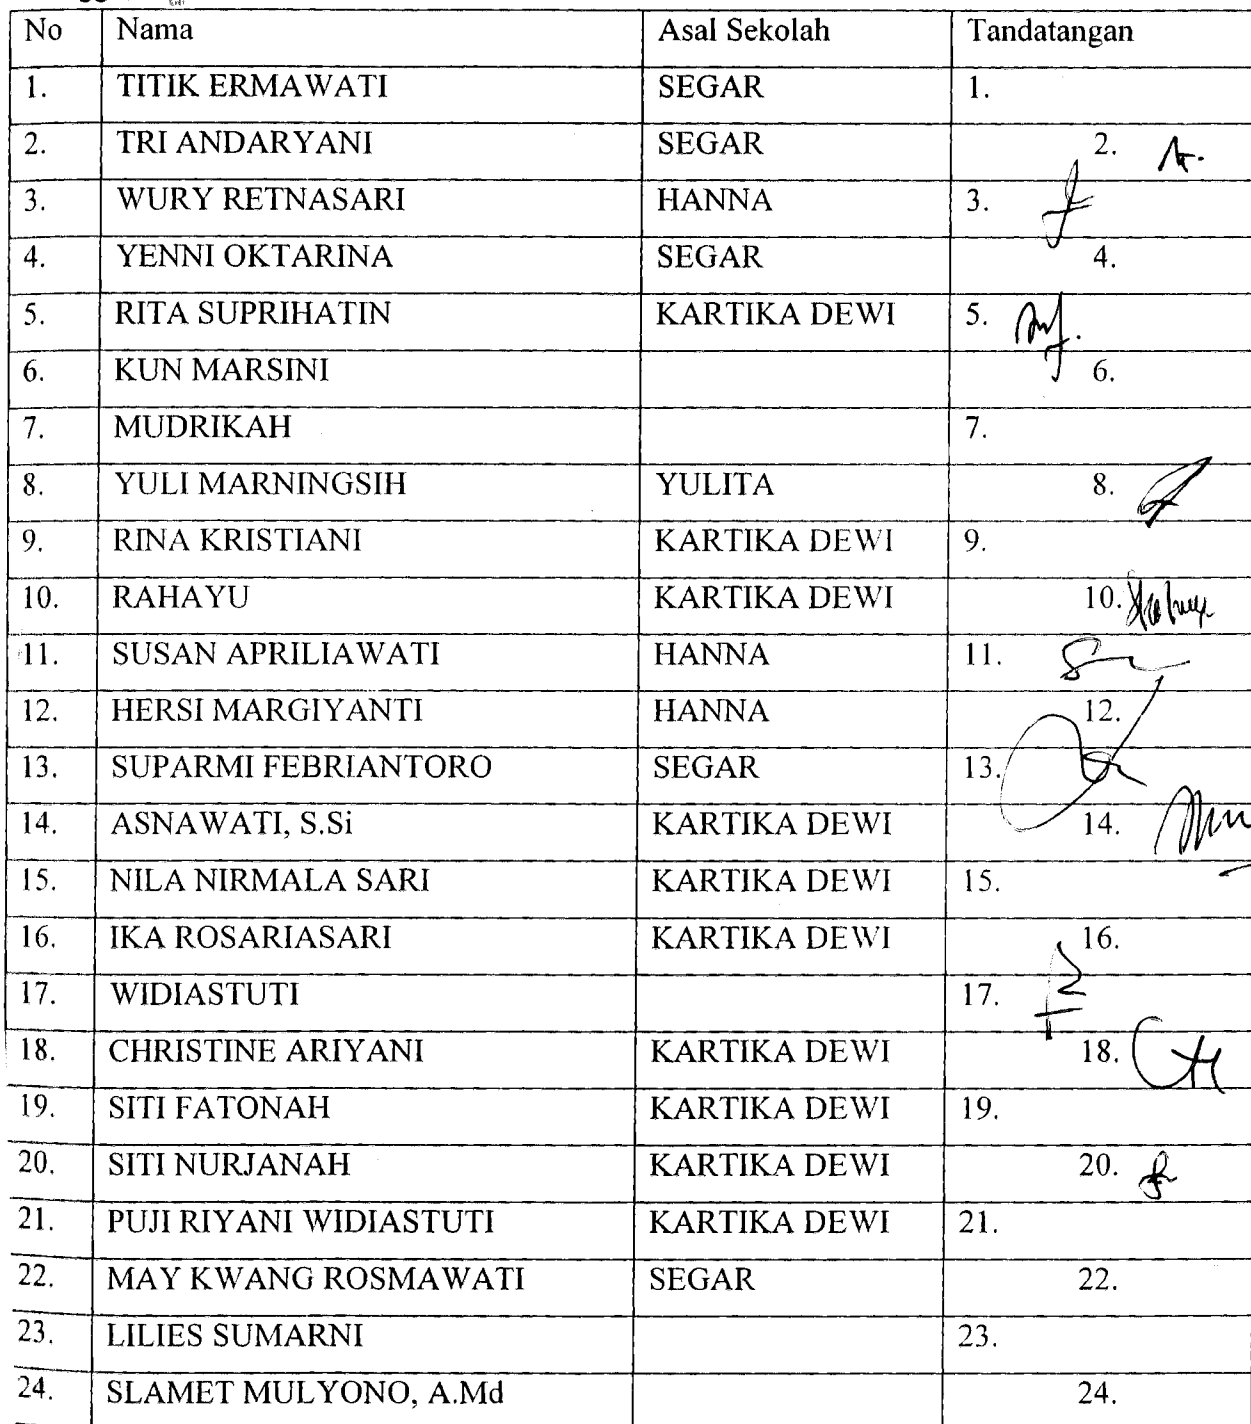 No Nama Asal Sekolah Tandatangan
1. TITIK ERMAWATI SEGAR 1.
2. TRI ANDARYANI SEGAR 2.
3. WURY RETNASARI HANNA 3.
4. YENNI OKTARINA SEGAR 4.
5. RITA SUPRIHATIN KARTIKA DEWI 5.
6. KUN MARSINI 6.
7. MUDRIKAH 7.
8. YULI MARNINGSIH YULITA 8.
9. RINA KRISTIANI KARTIKA DEWI 9.
10. RAHAYU KARTIKA DEWI 10.
11. SUSAN APRILIAWATI HANNA 11.
12. HERSI MARGIYANTI HANNA 12.
13. SUPARMI FEBRIANTORO SEGAR 13.
14. ASNAWATI, S.Si KARTIKA DEWI 14.
15. NILA NIRMALA SARI KARTIKA DEWI 15.
16. IKA ROSARIASARI KARTIKA DEWI 16.
17. WIDIASTUTI 17.
18. CHRISTINE ARIYANI KARTIKA DEWI 18.
19. SITI FATONAH KARTIKA DEWI 19.
20. SITI NURJANAH KARTIKA DEWI 20.
21. PUJI RIYANI WIDIASTUTI KARTIKA DEWI 21.
22. MAY KWANG ROSMAWATI SEGAR 22.
23. LILIES SUMARNI 23.
24. SLAMET MULYONO, A.Md 24.